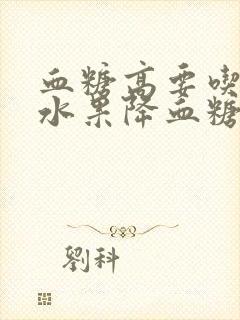 血糖高要喫
水果降血糖
劉科